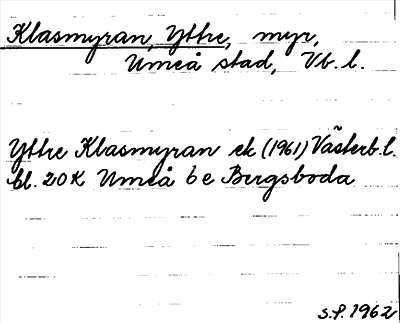 Klasmyran, Yttre, myr,
Umeå stad, Vb. l.
Yttre Klasmyran ek (1961) Västerb. l.
bl. 20K Umeå 6e Bergsboda
s.f. 1962